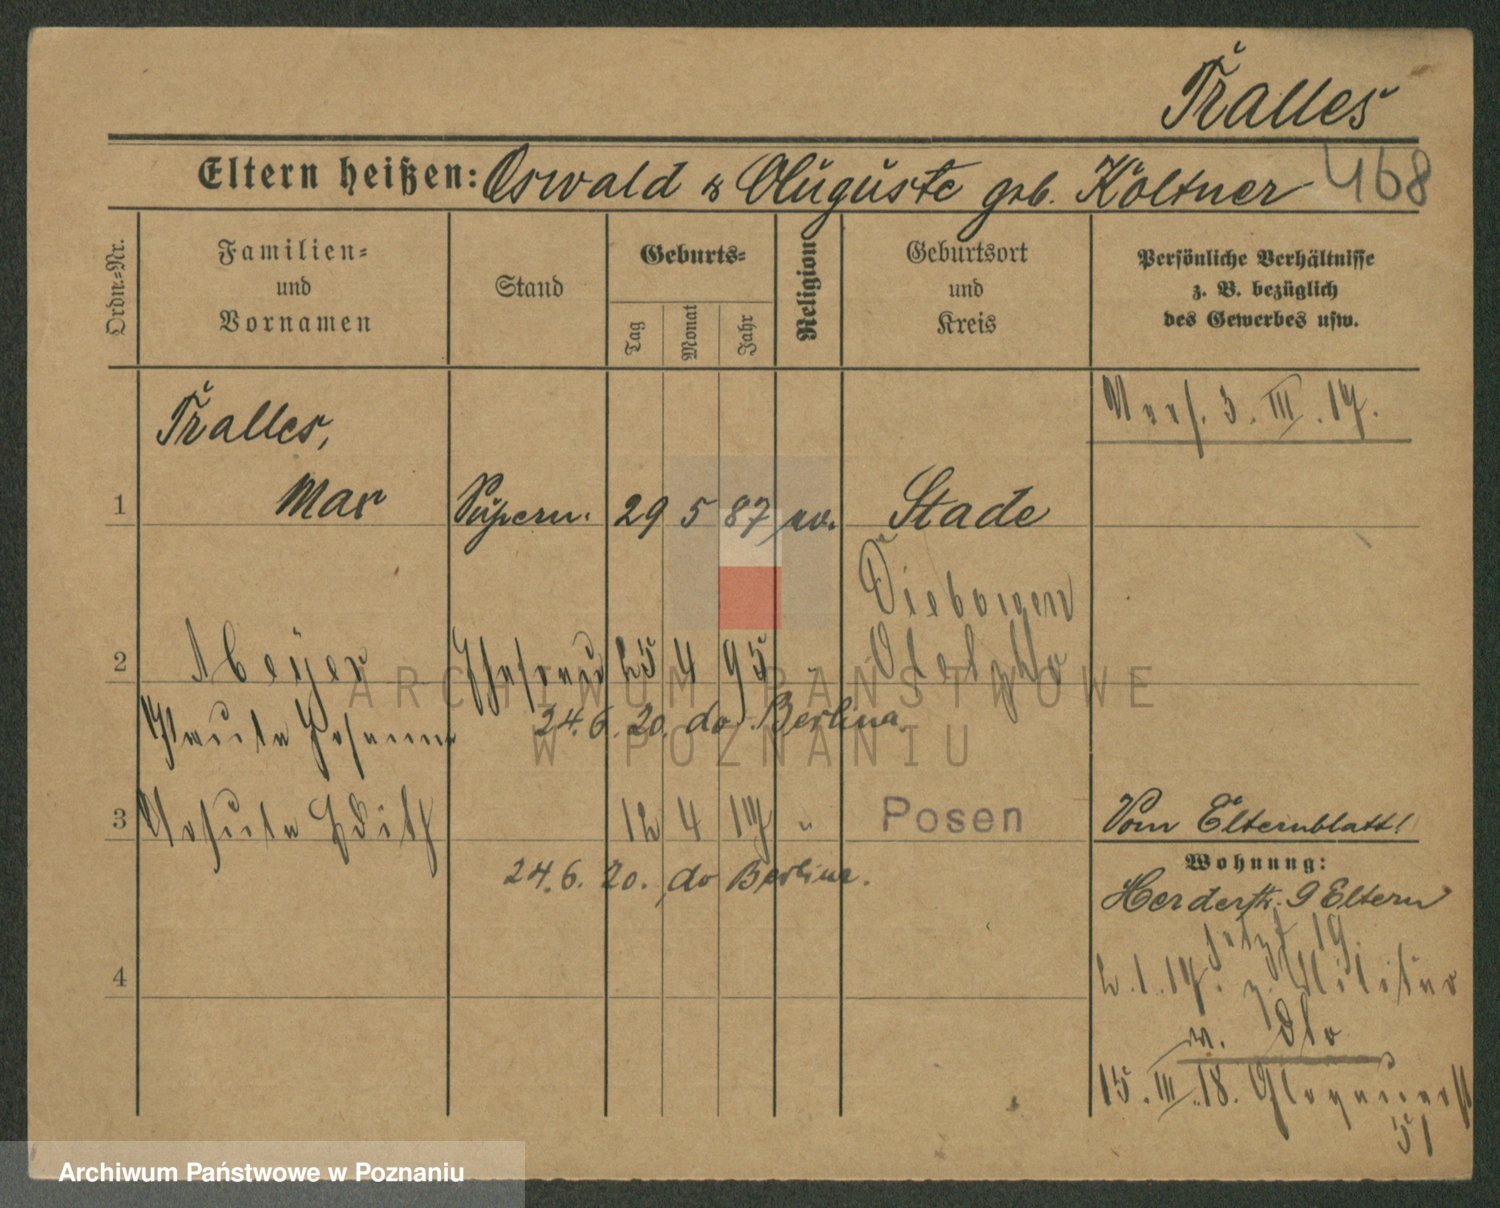 Tralles
Eltern heißen: Oswald & Auguste geb. Költner 468
Ordn.-Nr.
Familien-
und
Vornamen
Stand
Geburts-
Tag
Monat
Jahr
Religion
Geburtsort
und
Kreis
Persönliche Verhältnisse
z. B. bezüglich
des Gewerbes usw.
3. III. 17.
Tralles,
1 Max Supern. 29 5 87 ev. Stade
2 Beyer Ehefrau 25 4 95 "
Oletzko
24. 6. 20. do Berlina.
3 Edith 12 4 "
Posen
Vom Elternblatt!
24. 6. 20. do Berlina.
Wohnung:
Herderstr. 9 Eltern
jetzt 19.
2. 1. 17. z. Militär
4
w. dto
15. III. 18. Glogauerst
51
ARCHIWUM PAŃSTWOWE
W POZNANIU
Archiwum Państwowe w Poznaniu